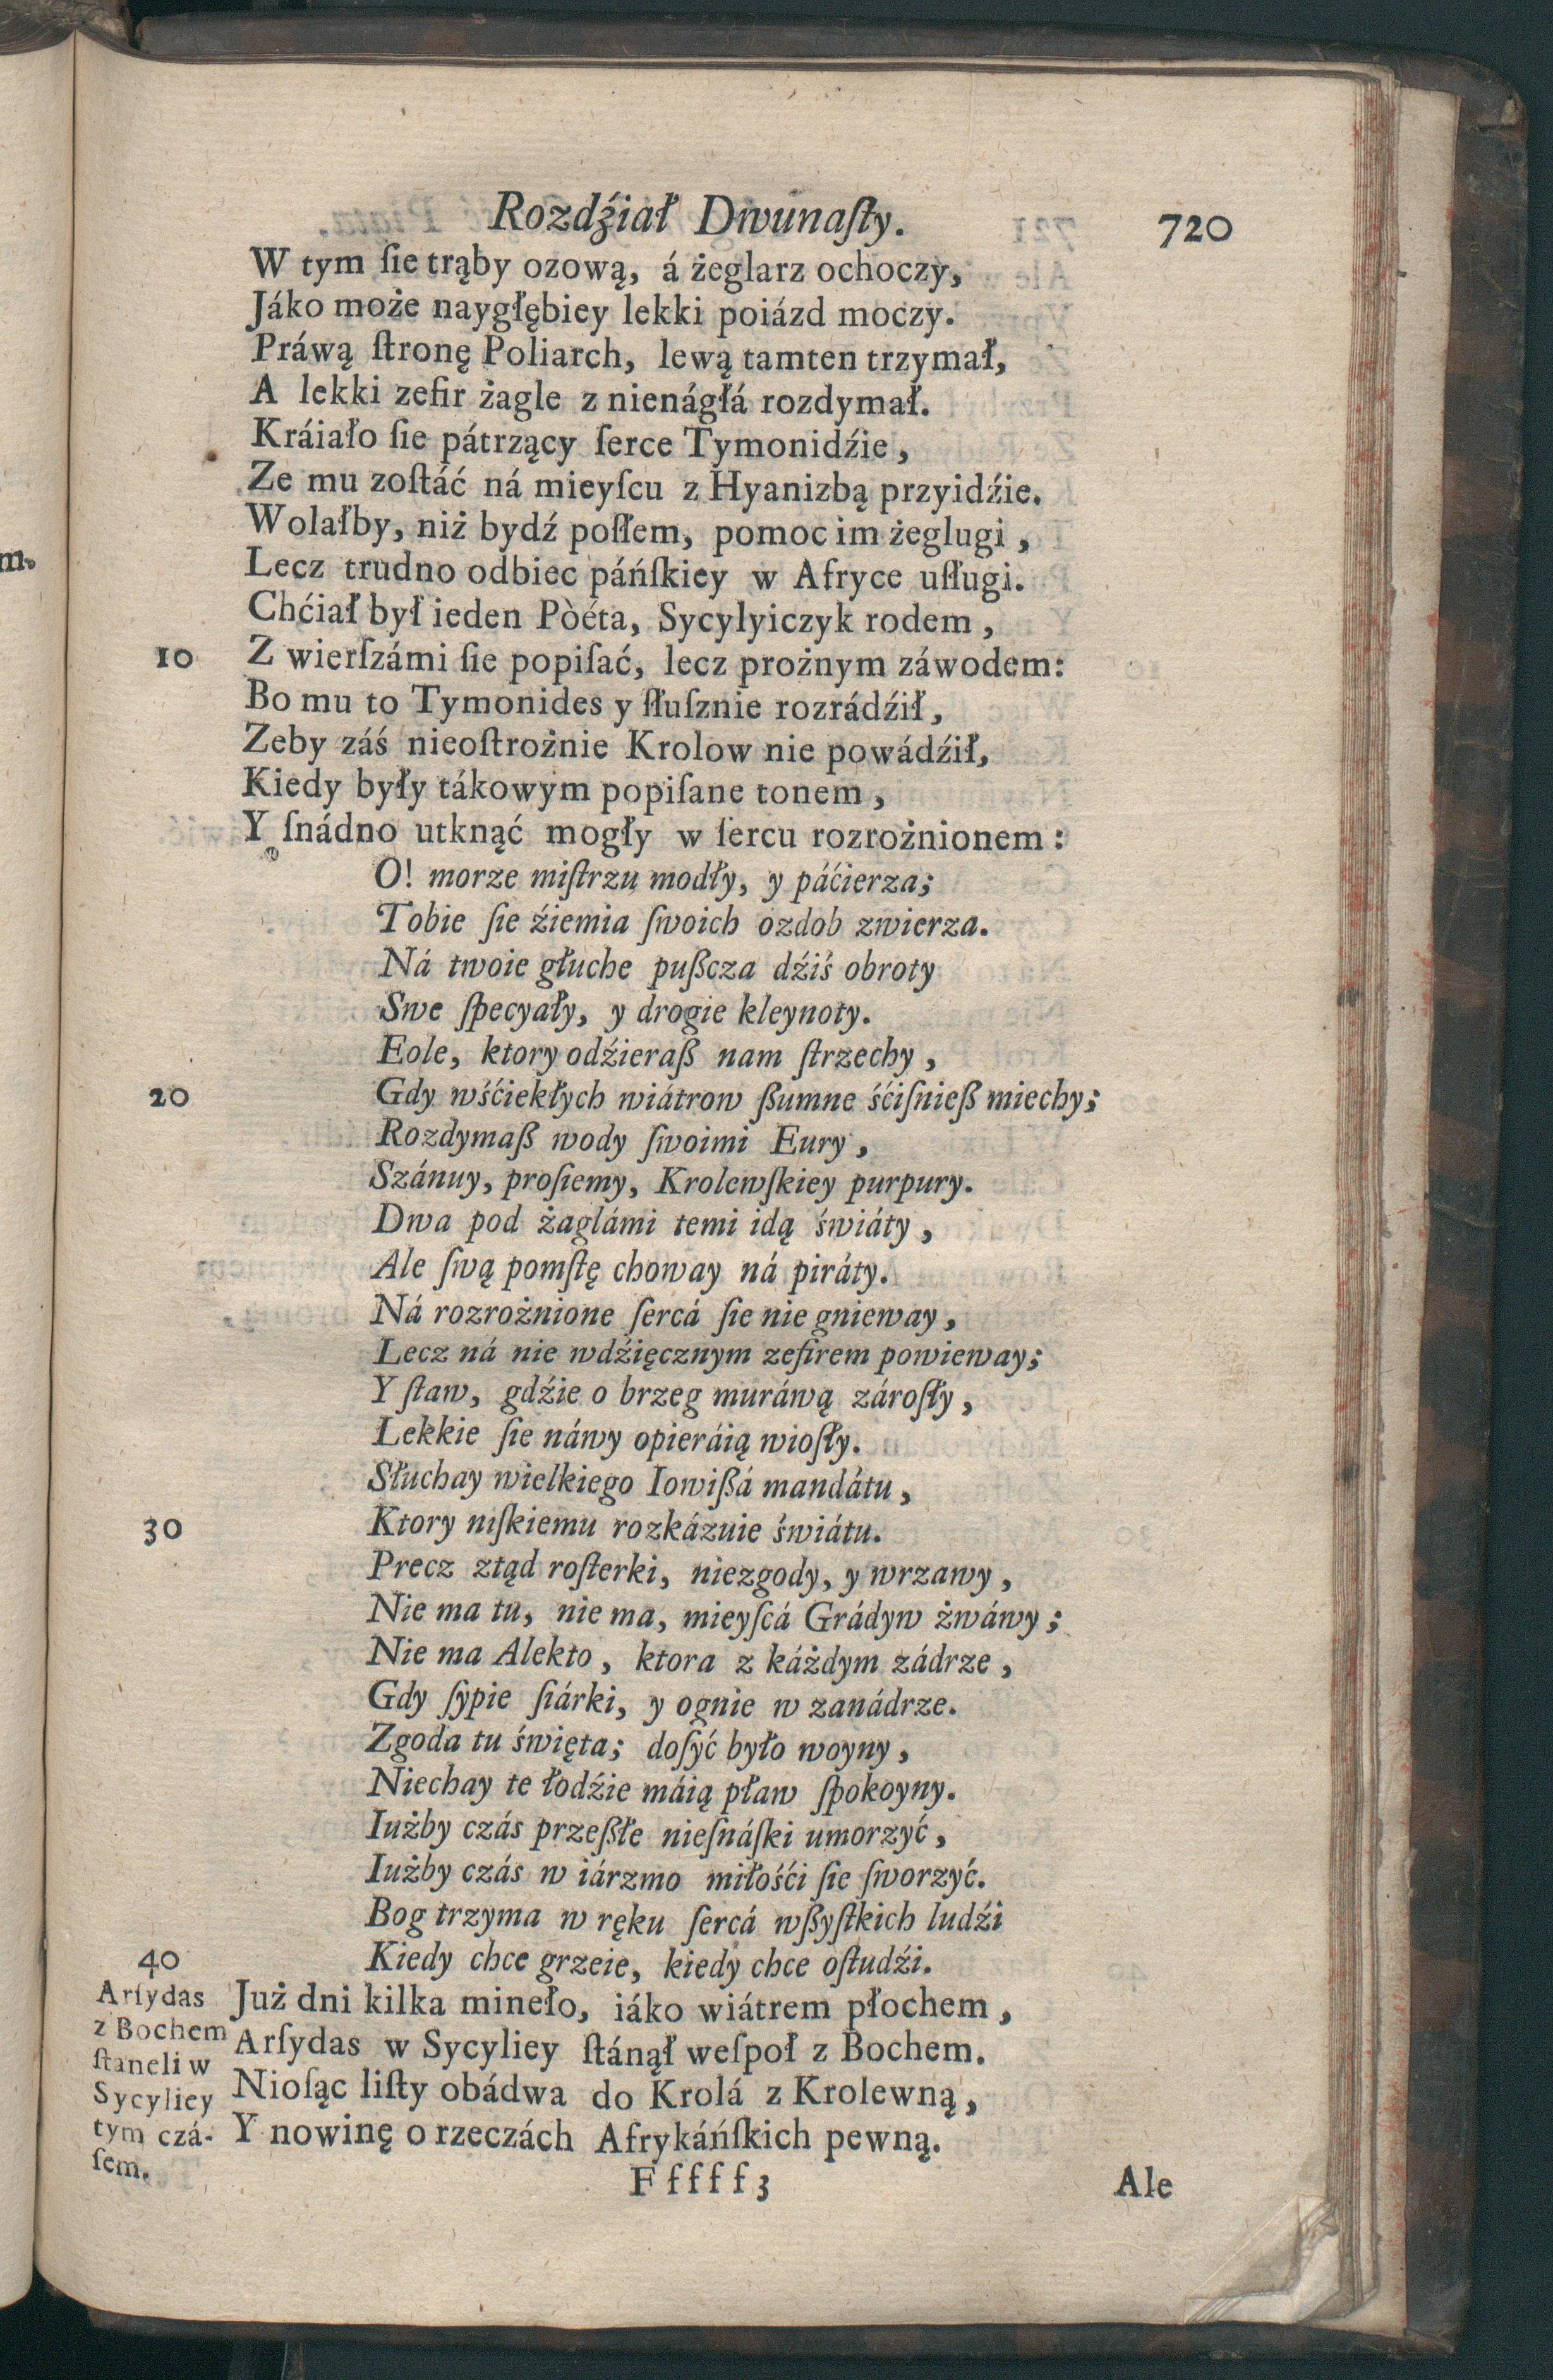 Rozdźiał Dwunaſty. 720
W tym ſie trąby ozową, á żeglarz ochoczy,
Jáko może naygłębiey lekki poiázd moczy.
Práwą ſtronę Poliarch, lewą tamten trzymał,
A lekki zefir żagle z nienágłá rozdymał.
Kráiało ſie pátrzący ſerce Tymonidźie,
Ze mu zoſtáć ná mieyſcu z Hyanizbą przyidźie.
Wolałby, niż bydź poſłem, pomoc im żeglugi,
Lecz trudno odbiec páńſkiey w Afryce uſługi.
Chćiał był ieden Pòéta, Sycylyiczyk rodem,
10 Z wierſzámi ſie popiſać, lecz prożnym záwodem:
Bo mu to Tymonides y ſłuſznie rozrádźił,
Zeby záś nieoſtrożnie Krolow nie powádźił,
Kiedy były tákowym popiſane tonem,
Y ſnádno utknąć mogły w ſercu rozrożnionem:
O! morze miſtrzu modły, y páćierza;
Tobie ſie źiemia ſwoich ozdob zwierza.
Ná twoie głuche pußcza dźiś obroty
Swe ſpecyały, y drogie kleynoty.
Eole, ktory odźieraß nam ſtrzechy,
20 Gdy wśćiekłych wiátrow ßumne śćiſnieß miechy;
Rozdymaß wody ſwoimi Eury,
Szánuy, proſiemy, Krolewſkiey purpury.
Dwa pod żaglámi temi idą świáty,
Ale ſwą pomſtę choway ná piráty.
Ná rozrożnione ſercá ſie nie gnieway,
Lecz ná nie wdźięcznym zefirem powieway;
Y ſtaw, gdźie o brzeg muráwą zároſły,
Lekkie ſie náwy opieráią wioſły.
Słuchay wielkiego Iowißá mandátu,
30 Ktory niſkiemu rozkázuie świátu.
Precz ztąd roſterki, niezgody, y wrzawy,
Nie ma tu, nie ma, mieyſcá Grádyw żwáwy;
Nie ma Alekto, ktora z káżdym zádrze,
Gdy ſypie ſiárki, y ognie w zanádrze.
Zgoda tu święta; doſyć było woyny,
Niechay te łodźie máią pław ſpokoyny.
Iużby czás przeßłe nieſnáſki umorzyć,
Iużby czás w iárzmo miłośći ſie ſworzyć.
Bog trzyma w ręku ſercá wßyſtkich ludźi
40 Kiedy chce grzeie, kiedy chce oſtudźi.
Już dni kilka mineło, iáko wiátrem płochem,
Arſydas w Sycyliey ſtánął weſpoł z Bochem.
Nioſąc liſty obádwa do Krolá z Krolewną,
Y nowinę o rzeczách Afrykáńſkich pewną.
Arſydas
z Bochem
ſtaneli w
Sycyliey
tym czá-
ſem.
F f f f f 3 Ale
m.